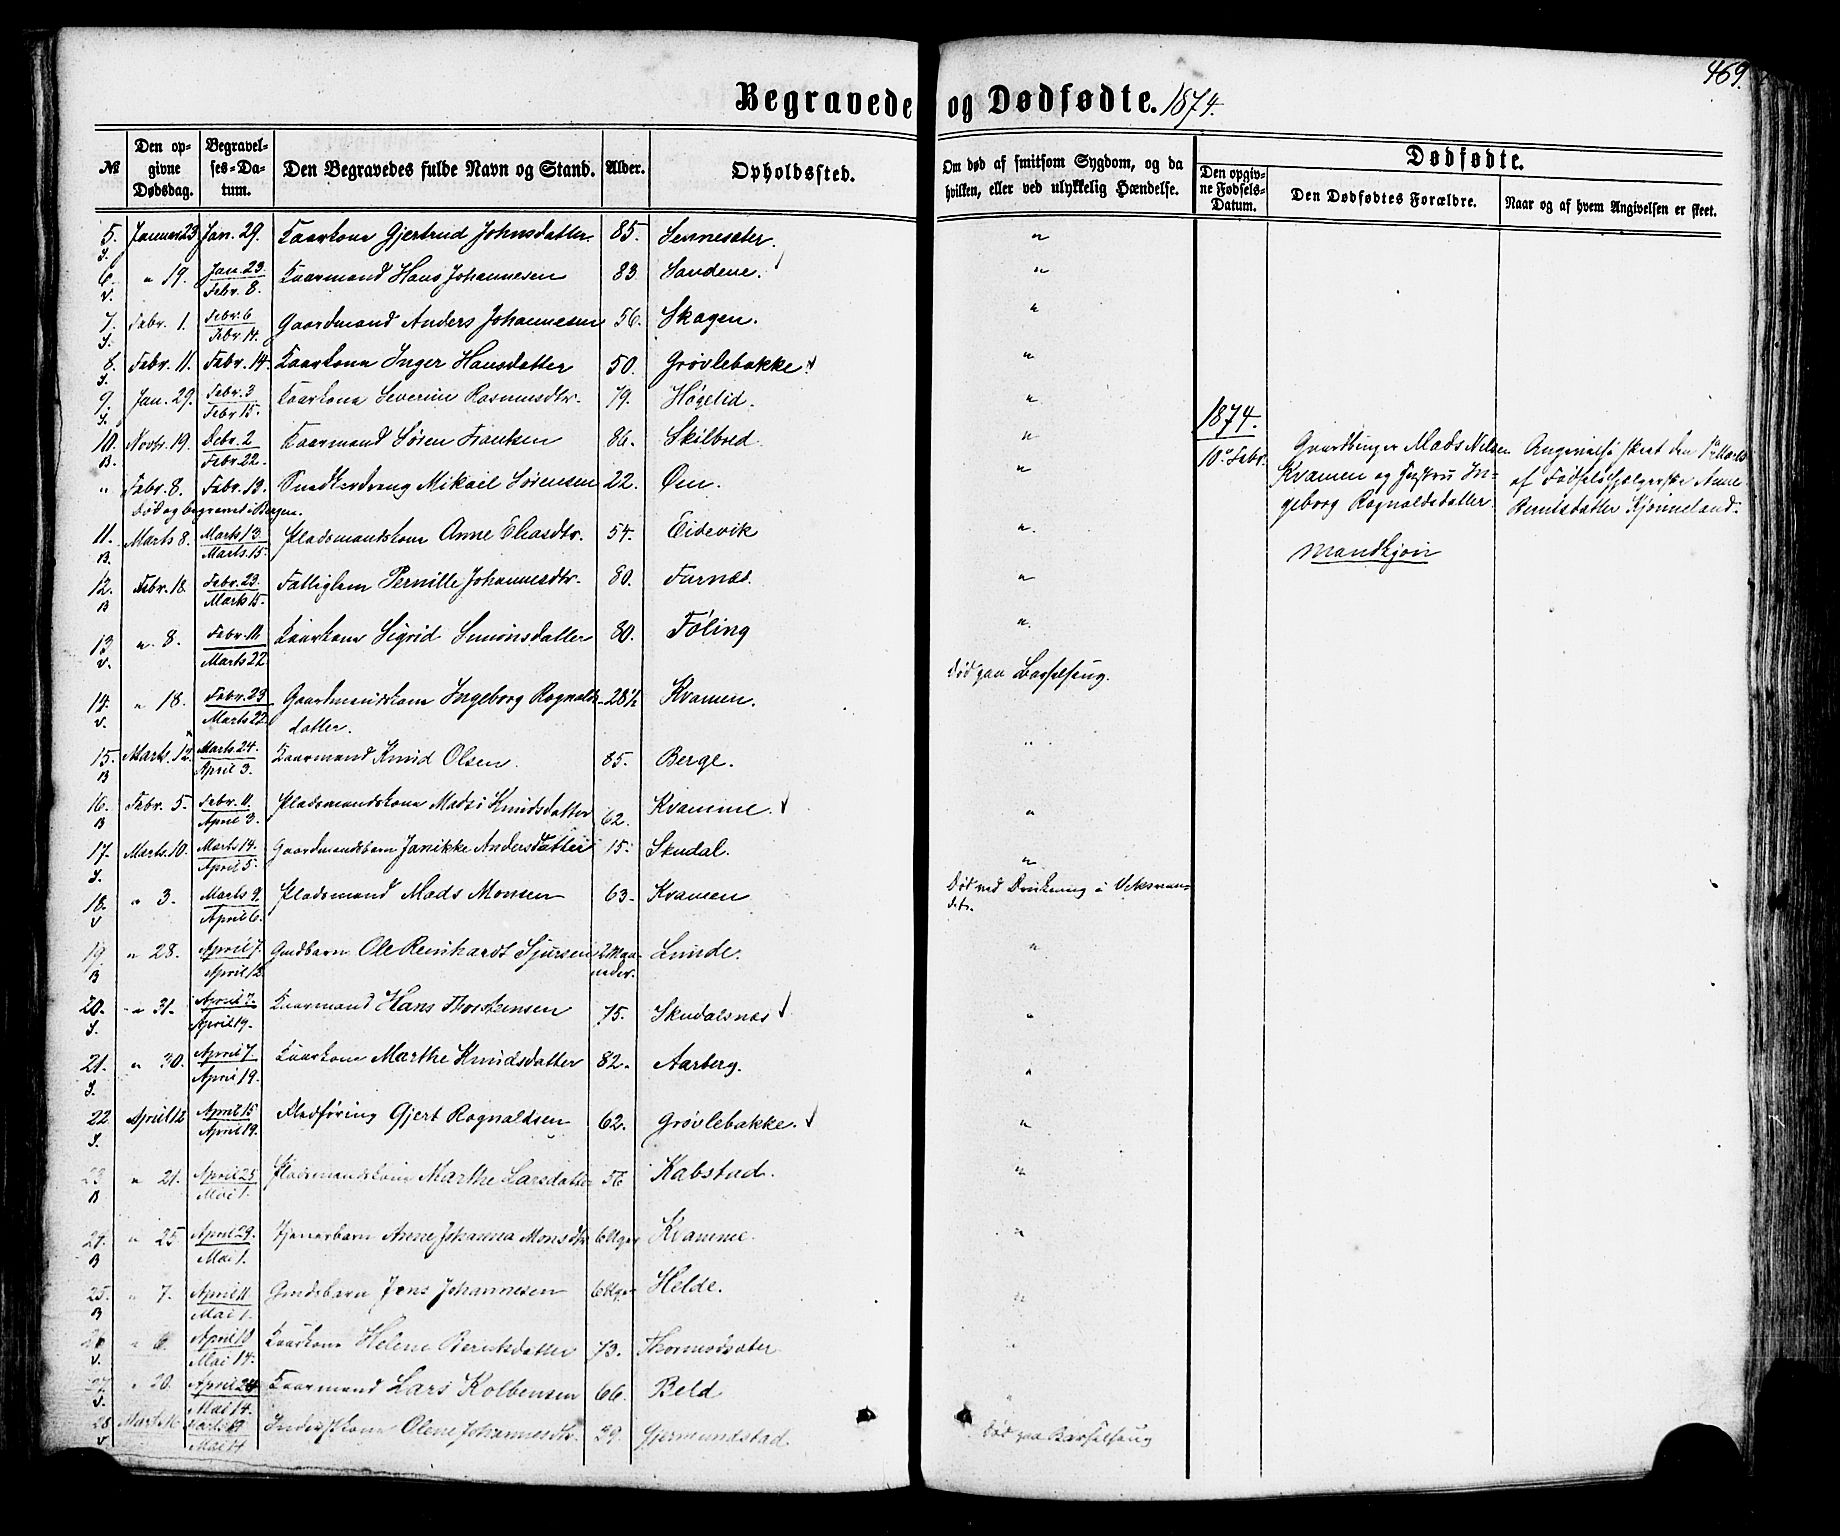 469.
Begravede og Dødfødte. 1874.
№
Den opgivne Dødsdag.
Begravelses-Datum.
Den Begravedes fulde Navn og Stand.
Alder.
Opholdssted.
Om død af smitsom Sygdom, og da hvilken, eller ved ulykkelig Hændelse.
Dødfødte.
Den opgivne Fødsels-Datum.
Den Dødfødtes Forældre.
Naar og af hvem Angivelsen er skeet.
5. S. Januar 23 Jan. 29. Kaarkone Gjertrud Johnsdatter 85. Sennesæter. "
6. V. " 19. Jan. 23. Febr. 8. Kaarmand Hans Johannesen 83 Sandene. "
7. S. Febr. 1. Febr. 6 Febr. 14. Gaardmand Anders Johannesen 56. Skagen. "
8. S. Febr. 11. Febr. 14. Kaarkone Inger Hansdatter 50. Grøvlebakke. "
9. S. Jan. 29. Febr. 3 Febr. 15. Kaarkone Severine Rasmusdtr. 79. Høgelid. "
10. B. Novbr. 19. Febr. 22. Kaarmand Søren 86. Skilbred. "
" Febr. 8. Febr. 13. Snedkerdreng Mikael Sørensen 22. Øen. "
Død og begravet i Bergen.
11. B. Marts 8. Marts 13. Marts 15. Pladsmandskone Anne Eliasdtr. 54. Eidevik "
12. B Febr. 18. Febr. 23. Marts 15. Fattiglem Pernille Johannesdtr. 80. Furnæs. "
13 V. " 8. Febr. 11. Marts 22. Kaarkone Sigrid Simonsdatter 80. Føling "
14. V. " 18. Febr. 23 Marts 22. Gaardmandskone Ingeborg Rognalds- 28½ Kvamen. død paa Barselseng.
datter.
15. B Marts. 12 Marts 24. April 3. Kaarmand Knud Olsen. 85. Berge. "
16. B Febr. 5. Febr. 11. April 3. Pladsmandskone Madsi Knudsdatter 62. Kvamme. "
17. S. Marts. 10. Marts 14. April 5. Gaardmandsbarn Janikke Andersdatter 15. Skudal. "
18. V " 3. Marts 9. April 6. Pladsmand Mads Monsen 63. Kvamen Død ved Drukning i
19 B " 28. April 7. April 12. Gmdbarn Ole Reinhardt Sjursen 2 Maa- Lunde. "
neder.
20. S. " 31. April 7. April 19. Kaarmand Hans Thorstensen 75. Skudalsnæs "
21. S. " 30. April 7 April 19. Kaarkone Marthe Knudsdatter 82. Aarberg. "
22. S. April 12 April 15 April 19. Flødføring Gjert Rognaldsen 62. Grøvlebakke. "
23 B " 21. April 25 Mai 1. Pladsmandskone Marthe Larsdatter 56 Kabstad. "
24. B " 25 April 29. Mai 1. Tjenerbarn Anne Johanna Monsdtr 6 Uger Kvamme. "
25. B " 7. April 11. Mai 1. Gmdsbarn Jens Johannesen 6 Uger Helde. "
26 V. " 6 April 10 Mai 14. Kaarkone Helene Berntsdatter 73. Thormodsæter "
27 S. " 20. April 24 Mai 14. Kaarmand Lars Kolbensen 66. Beld "
28 V Marts Mai 14 Inderstkone Olene Johannesdtr. 29. Gjermundstad Død paa Barselseng
1874.
10de Febr.
Gaardbruger Mads Nilsen
Kvamen og Hustru In-
geborg Rognaldsdatter.
Mandkjøn
Angivelse skeet den 1ste Marts
af Fødselshjælperske Anne
Berntsdatter Kjønneland.